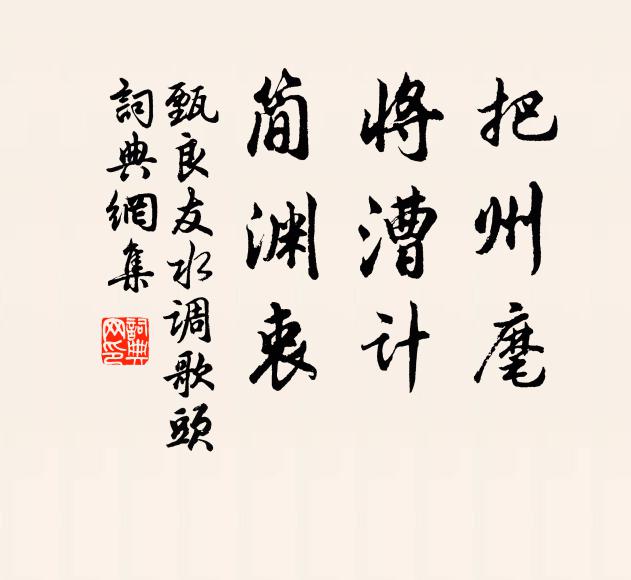 把州麾
將漕計
简渊衷
甄良友水调歌頭
詞典網集
詞典网印